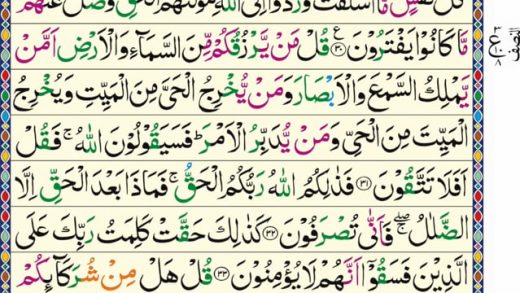 كُلُّ نَفْسٍ مَّاۤ اَسْلَفَتْ وَرُدُّوْۤا اِلَى اللّٰهِ مَوْلٰىهُمُ الْحَقِّ وَضَلَّ عَنْهُمْ
مَّا كَانُوْا يَفْتَرُوْنَ ﴿۳۰﴾ ع قُلْ مَنْ يَّرْزُقُكُمْ مِّنَ السَّمَآءِ وَالْاَرْضِ اَمَّنْ
يَّمْلِكُ السَّمْعَ وَالْاَبْصَارَ وَمَنْ يُّخْرِجُ الْحَىَّ مِنَ الْمَيِّتِ وَيُخْرِجُ
الْمَيِّتَ مِنَ الْحَىِّ وَمَنْ يُّدَبِّرُ الْاَمْرَ ؕ فَسَيَقُوْلُوْنَ اللّٰهُ ۚ فَقُلْ
اَفَلَا تَتَّقُوْنَ ﴿۳۱﴾ فَذٰلِكُمُ اللّٰهُ رَبُّكُمُ الْحَقُّ ۚ فَمَاذَا بَعْدَ الْحَقِّ اِلَّا
الضَّلٰلُ ۖۚ فَاَنّٰى تُصْرَفُوْنَ ﴿۳۲﴾ كَذٰلِكَ حَقَّتْ كَلِمَتُ رَبِّكَ عَلَى
الَّذِيْنَ فَسَقُوْۤا اَنَّهُمْ لَا يُؤْمِنُوْنَ ﴿۳۳﴾ قُلْ هَلْ مِنْ شُرَكَآئِكُمْ